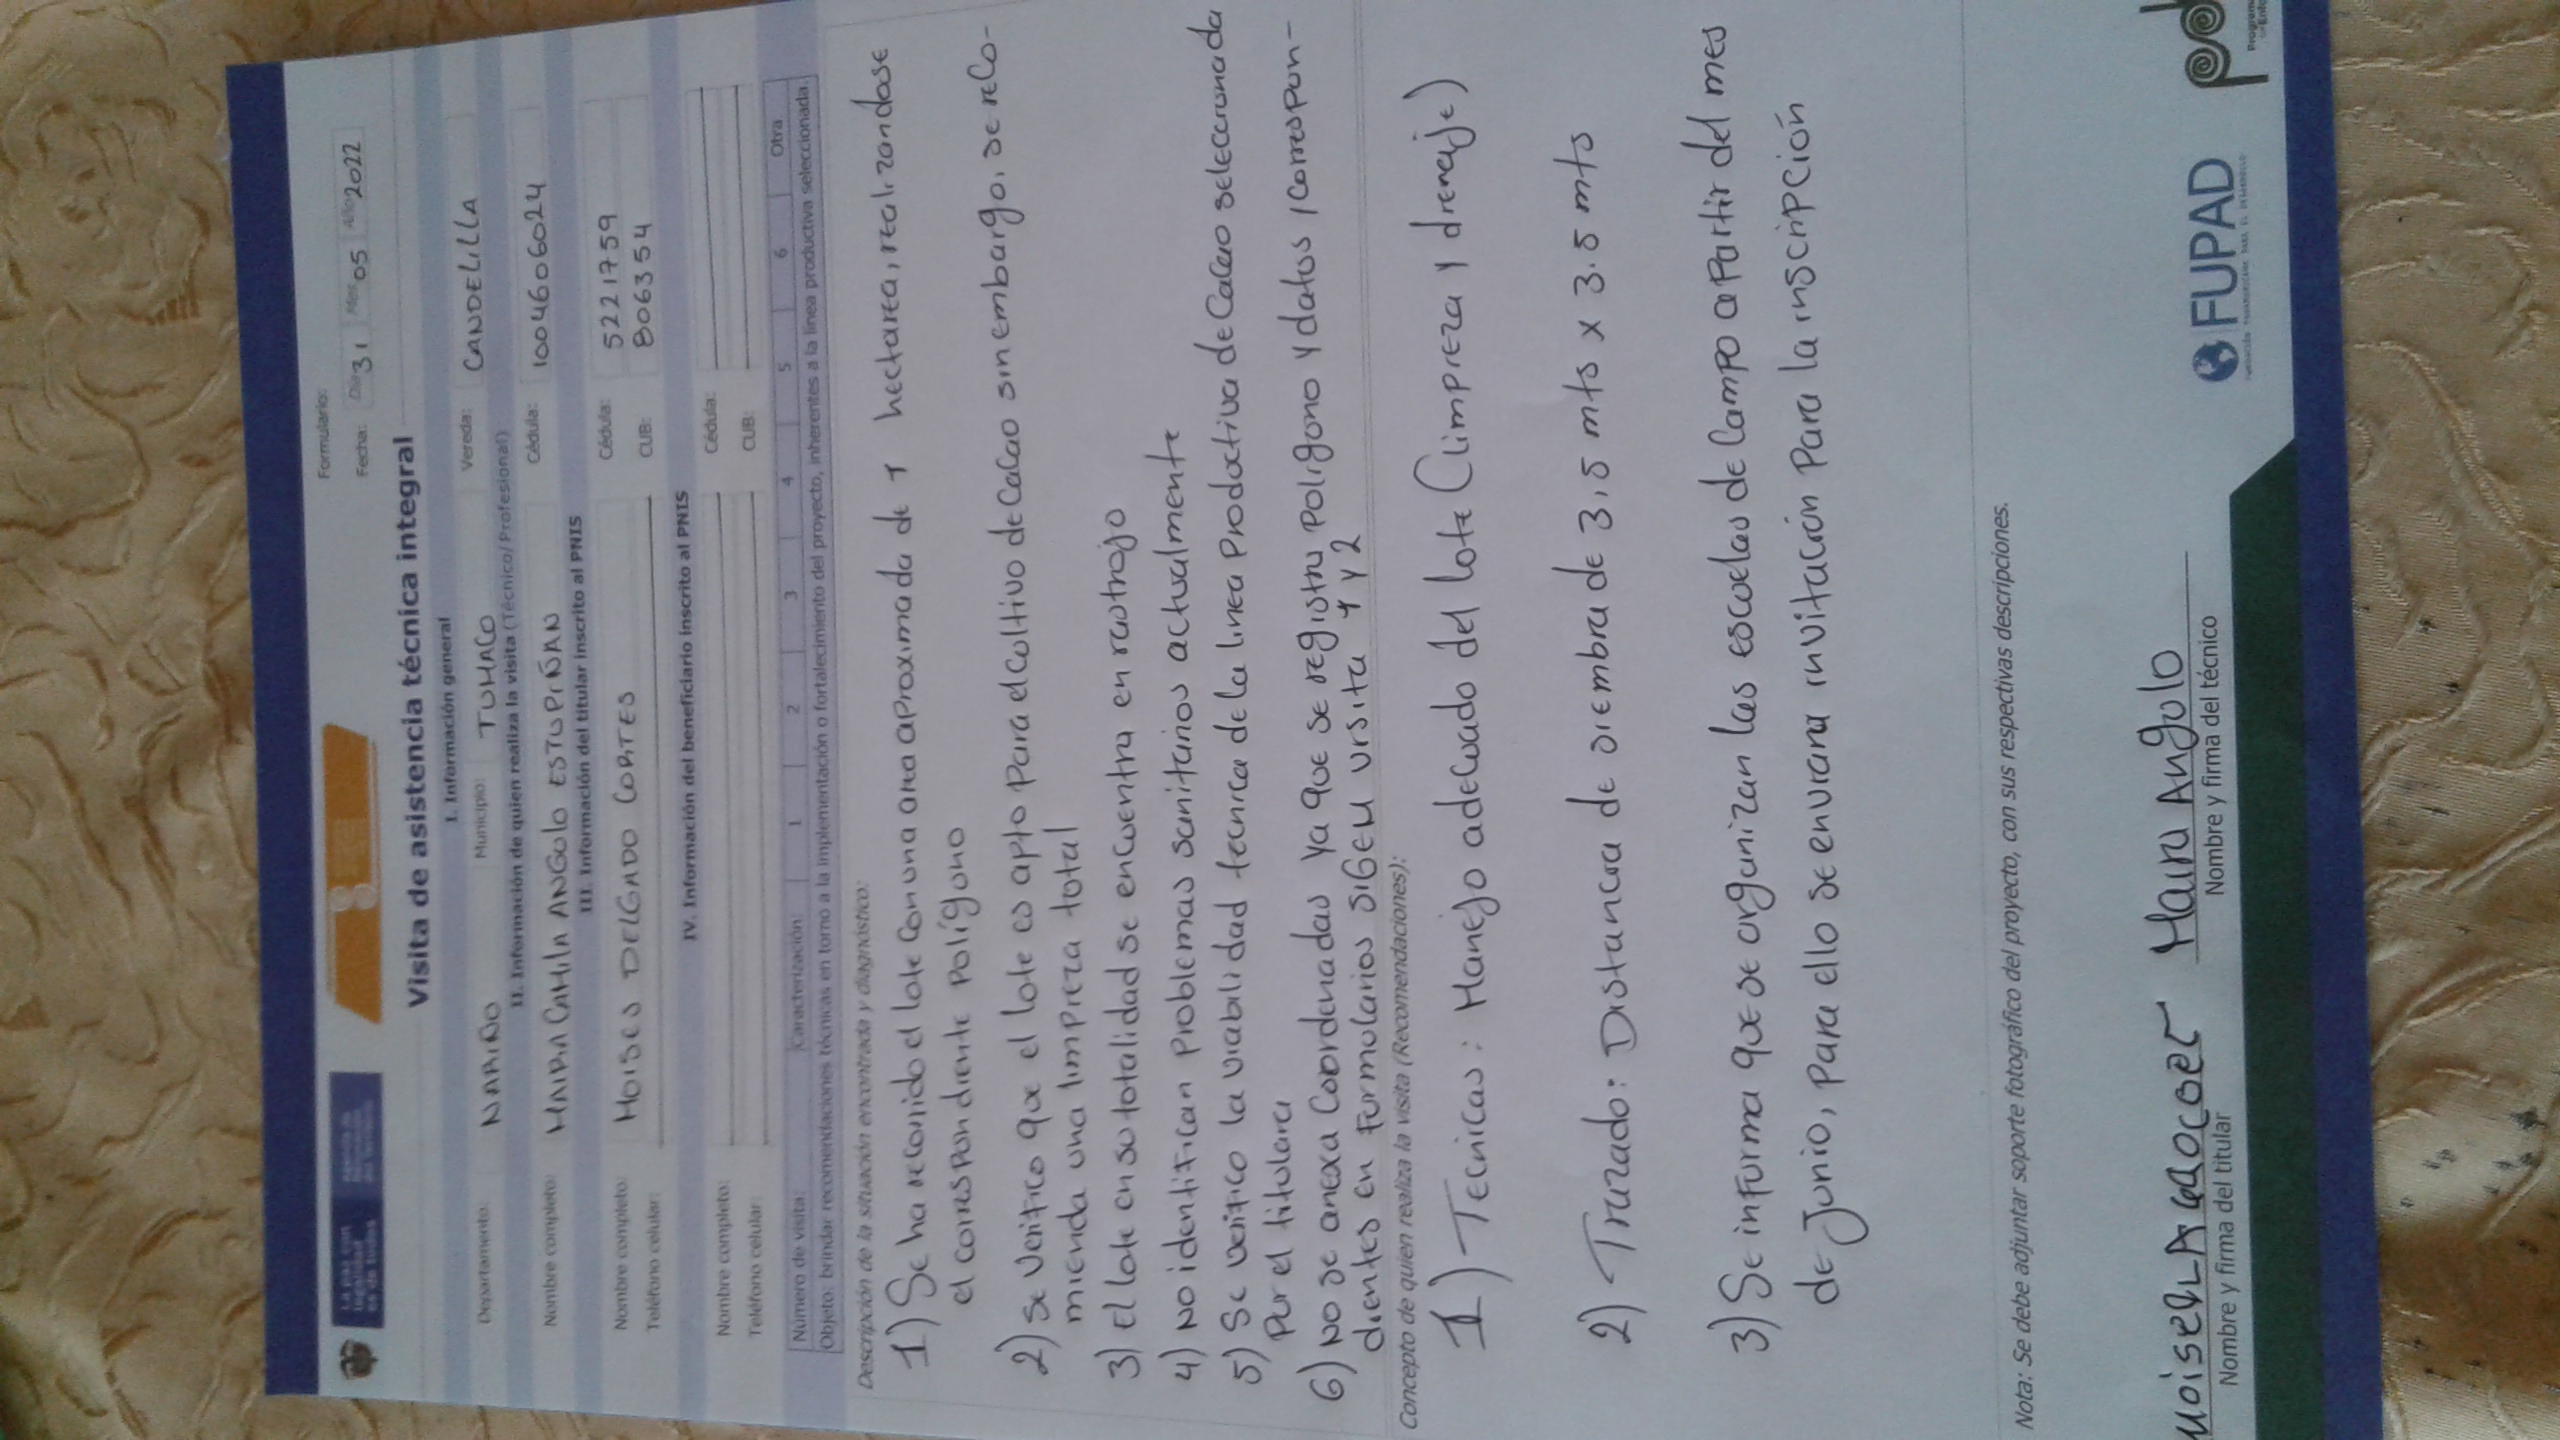 Formulario:
Fecha: Día 31 Mes 05 Año 2022
Visita de asistencia técnica integral
I. Información general
Departamento: NARIÑO Municipio: TUMACO Vereda: CANDELILLA
II. Información de quien realiza la visita (Técnico/Profesional)
Nombre completo: MAIRA CAMILA ANGULO ESTUPIÑAN Cédula: 1004606024
III. Información del titular inscrito al PNIS
Nombre completo: MOISES DELGADO CORTES Cédula: 5221759
Teléfono celular: CUB: 806354
IV. Información del beneficiario inscrito al PNIS
Nombre completo: Cédula:
Teléfono celular: CUB:
Número de visita: Caracterización: 1 2 3 4 5 6 Otra
Objeto: brindar recomendaciones técnicas en torno a la implementación o fortalecimiento del proyecto, inherentes a la línea productiva seleccionada.
Descripción de la situación encontrada y diagnóstico:
1) Se ha recorrido el lote con una area aproximada de 1 hectarea, realizandose
el correspondiente Polígono
2) se Verifico que el lote es apto para el cultivo de Cacao sin embargo, se reco-
mienda una limpieza total
3) el lote en su totalidad se encuentra en rastrojo
4) NO identifican Problemas sanitarios actualmente
5) Se verifico la viabilidad tecnica de la linea Productiva de Cacao seleccionada
Por el titular
6) NO se anexa Coordenadas ya que se registra Poligono y datos correspon-
dientes en Formularios SIGEM visita 1 y 2
Concepto de quien realiza la visita (Recomendaciones):
1) Tecnicas: Manejo adecuado del lote (limpieza y drenaje)
2) Trazado: Distancia de siembra de 3,5 mts x 3.5 mts
3) Se informa que se organizan las escuelas de Campo a Partir del mes
de Junio, Para ello se enviara invitación Para la inscripción
Nota: Se debe adjuntar soporte fotográfico del proyecto, con sus respectivas descripciones.
Maira Angulo
Nombre y firma del titular Nombre y firma del técnico
FUPAD